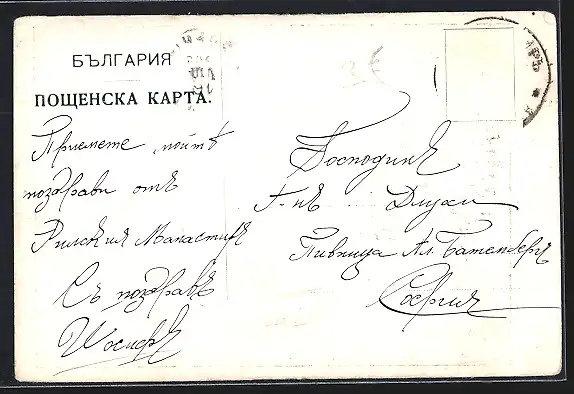 БЪЛГАРИЯ
ПОЩЕНСКА КАРТА.
Приемете пойтѣ
поздрави отъ
Рилския Манастиръ
Съ поздравъ
Йосифъ
Господинъ
Г-нъ
Пивница Ал. Батембергъ
София